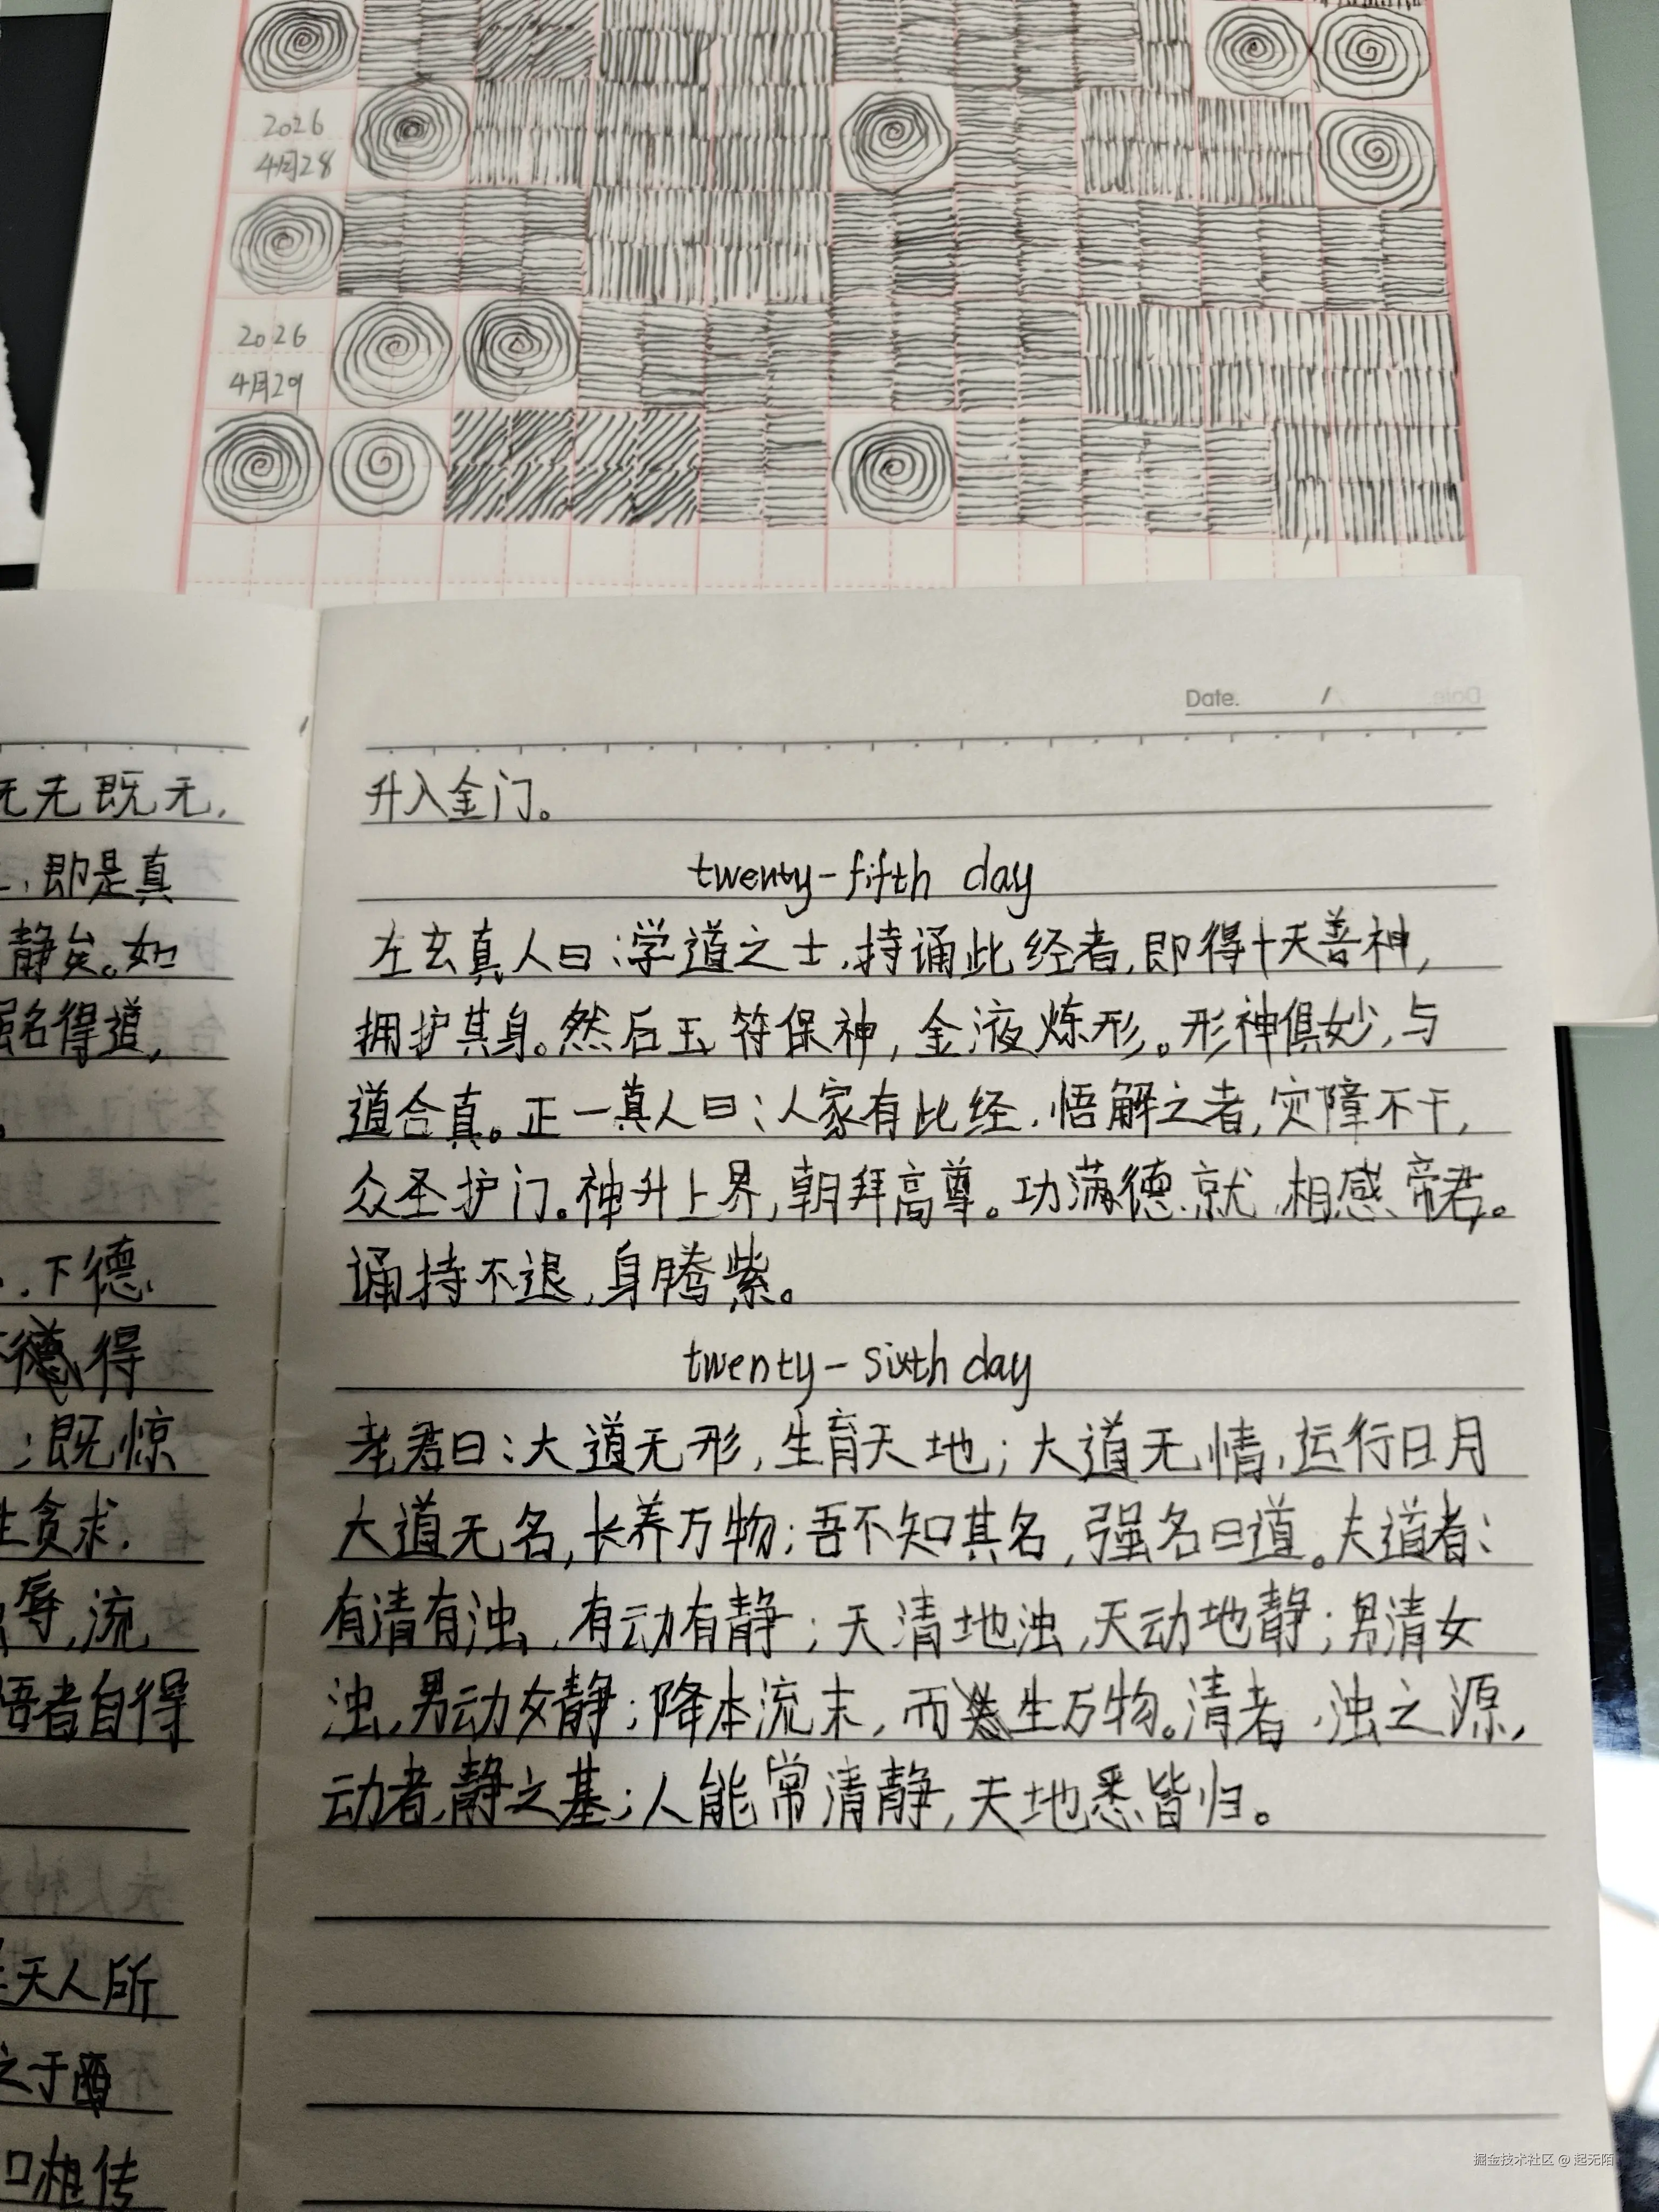 2026
4月28
2026
4月29
Date. /
无既无,
升入金门。
即是真
twenty-fifth day
静矣。如
左玄真人曰:学道之士,持诵此经者,即得十天善神,
强名得道,
拥护其身。然后玉符保神,金液炼形。形神俱妙,与
道合真。正一真人曰:人家有此经,悟解之者,灾障不干,
众圣护门。神升上界,朝拜高尊。功满德就,相感帝君。
下德
诵持不退,身腾紫。
得
twenty-sixth day
;既惊
老君曰:大道无形,生育天地;大道无情,运行日月
生贪求,
大道无名,长养万物;吾不知其名,强名曰道。夫道者:
辱,流
有清有浊,有动有静;天清地浊,天动地静;男清女
悟者自得
浊,男动女静;降本流末,而生万物。清者,浊之源,
动者,静之基;人能常清静,天地悉皆归。
天人所
之于
口相传
掘金技术社区 @ 起无陌